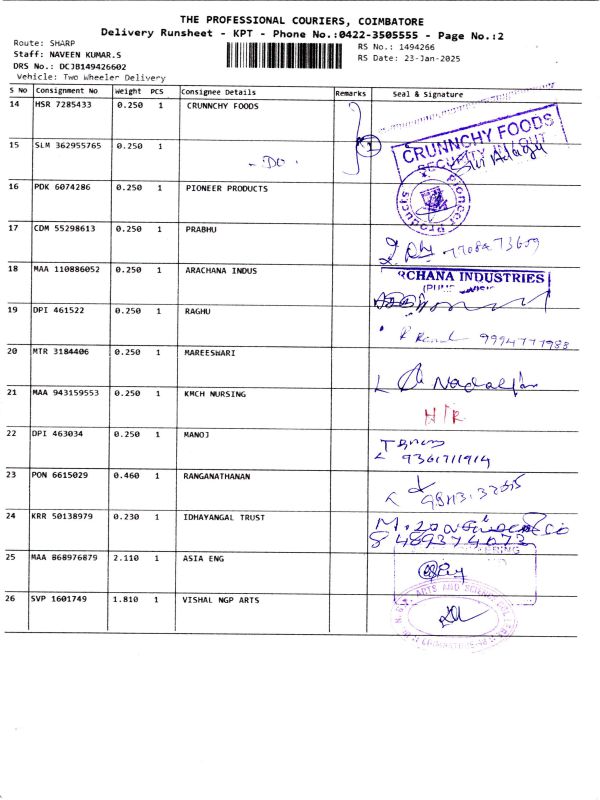 THE PROFESSIONAL COURIERS, COIMBATORE
Delivery Runsheet - KPT - Phone No.:0422-3505555 - Page No.:2
Route: SHARP
Staff: NAVEEN KUMAR.S
DRS No.: DCJB149426602
Vehicle: Two Wheeler Delivery
RS No.: 1494266
RS Date: 23-Jan-2025
S No Consignment No Weight PCS Consignee Details Remarks Seal & Signature
14 HSR 7285433 0.250 1 CRUNNCHY FOODS
CRUNNCHY FOODS
15 SLM 362955765 0.250 1 - DO - 1
16 PDK 6074286 0.250 1 PIONEER PRODUCTS
Pioneer Products
17 CDM 55298613 0.250 1 PRABHU
18 MAA 110886052 0.250 1 ARACHANA INDUS
RCHANA INDUSTRIES
19 DPI 461522 0.250 1 RAGHU
9994771988
20 MTR 3184406 0.250 1 MAREESWARI
21 MAA 943159553 0.250 1 KMCH NURSING
22 DPI 463034 0.250 1 MANOJ
9361711914
23 PON 6615029 0.460 1 RANGANATHANAN
24 KRR 50138979 0.230 1 IDHAYANGAL TRUST
8489374073
25 MAA 868976879 2.110 1 ASIA ENG
26 SVP 1601749 1.810 1 VISHAL NGP ARTS
ARTS AND SCIENCE